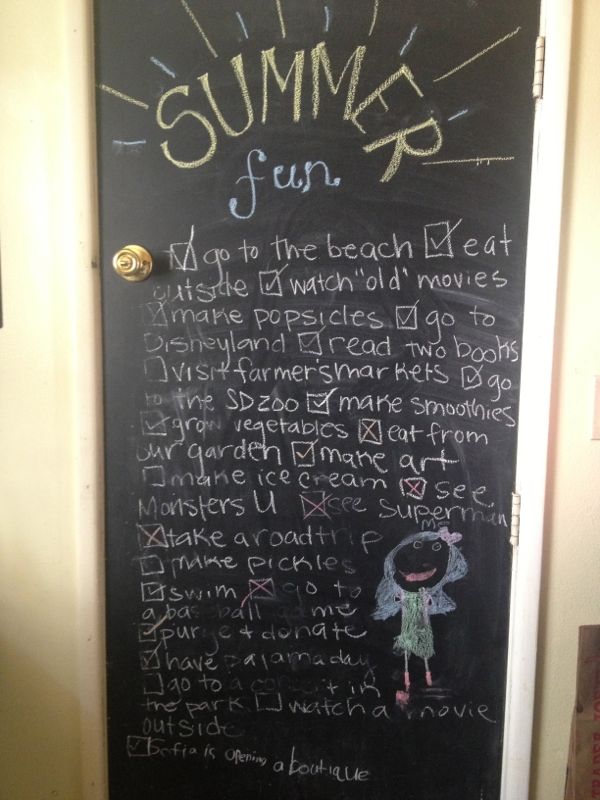 SUMMER
fun
go to the beach eat
outside watch "old" movies
make popsicles go to
Disneyland read two books
visit farmersmarkets go
to the SDZOO make smoothies
grow vegetables eat from
our garden make art
make ice cream see
Monsters U see Superman
take a roadtrip
Me
make pickles
swim go to
a baseball game
purge + donate
have pajamaday
go to a concert in
the park watch a movie
outside
Sofia is opening a boutique